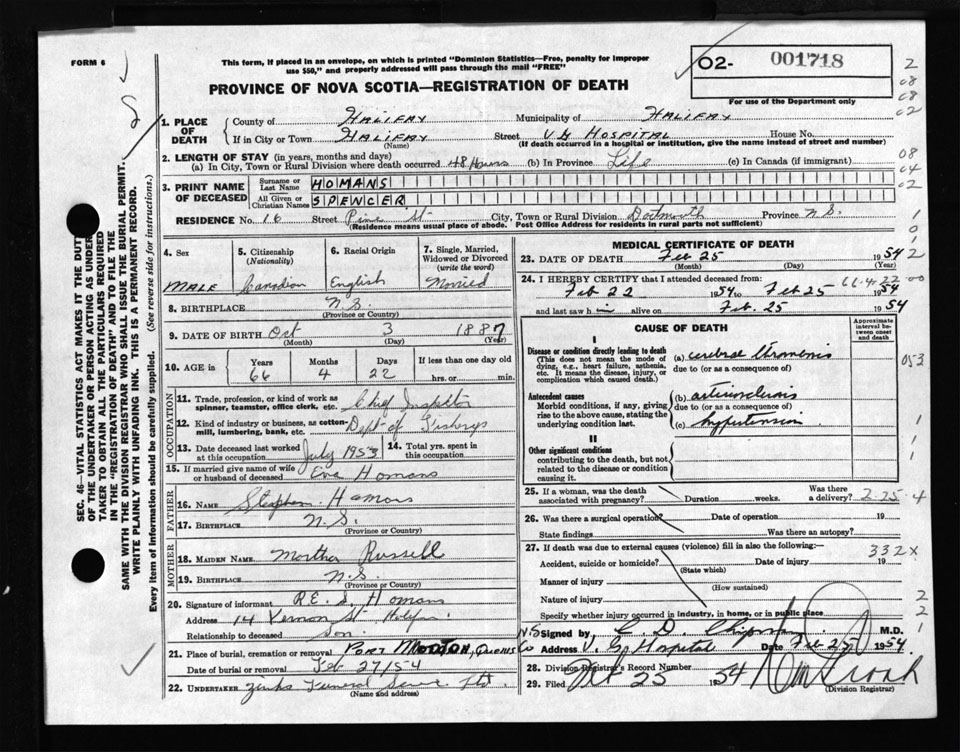 FORM 6
This form, if placed in an envelope, on which is printed "Dominion Statistics—Free, penalty for improper
use $50," and properly addressed will pass through the mail "FREE"
PROVINCE OF NOVA SCOTIA—REGISTRATION OF DEATH
02- 001718
For use of the Department only
1. PLACE OF DEATH
County of HALIFAX Municipality of HALIFAX
If in City or Town HALIFAX Street V.G HOSPITAL House No.
(Name) (If death occurred in a hospital or institution, give the name instead of street and number)
2. LENGTH OF STAY (in years, months and days)
(a) In City, Town or Rural Division where death occurred 48 Hours (b) In Province Life (c) In Canada (if immigrant)
3. PRINT NAME OF DECEASED
Surname or Last Name HOMANS
All Given or Christian Names SPENCER
RESIDENCE No. 16 Street Pine St City, Town or Rural Division Dartmouth Province N.S.
(Residence means usual place of abode. Post Office Address for residents in rural parts not sufficient)
4. Sex
MALE
5. Citizenship (Nationality)
Canadian
6. Racial Origin
English
7. Single, Married, Widowed or Divorced (write the word)
Married
8. BIRTHPLACE N.S.
(Province or Country)
9. DATE OF BIRTH Oct 3 1887
(Month) (Day) (Year)
10. AGE in Years Months Days If less than one day old
66 4 22 hrs. or min.
OCCUPATION
11. Trade, profession, or kind of work as spinner, teamster, office clerk, etc. Chief Inspector
12. Kind of industry or business, as cotton-mill, lumbering, bank, etc. Dept of Fisherys
13. Date deceased last worked at this occupation July 1953
14. Total yrs. spent in this occupation
15. If married give name of wife or husband of deceased Eva Homans
FATHER
16. NAME Stephen Homans
17. BIRTHPLACE N.S.
(Province or Country)
MOTHER
18. MAIDEN NAME Martha Russell
19. BIRTHPLACE N.S.
(Province or Country)
20. Signature of informant R.E.S. Homans
Address 14 Vernon St Halifax
Relationship to deceased Son
21. Place of burial, cremation or removal PORT MOUTON, QUEENS Co NS
Date of burial or removal Feb 27/54
22. UNDERTAKER Zinks Funeral Serv. Ltd.
(Name and address)
MEDICAL CERTIFICATE OF DEATH
23. DATE OF DEATH Feb 25 1954
(Month) (Day) (Year)
24. I HEREBY CERTIFY that I attended deceased from:
Feb 22 1954 to Feb 25 1954
and last saw him alive on Feb. 25 1954
CAUSE OF DEATH
Approximate interval between onset and death
I
Disease or condition directly leading to death
(This does not mean the mode of dying, e.g., heart failure, asthenia, etc. It means the disease, injury, or complication which caused death.)
(a) cerebral thrombosis
due to (or as a consequence of)
Antecedent causes
Morbid conditions, if any, giving rise to the above cause, stating the underlying condition last.
(b) arteriosclerosis
due to (or as a consequence of)
(c) hypertension
II
Other significant conditions
contributing to the death, but not related to the disease or condition causing it.
25. If a woman, was the death associated with pregnancy? Duration weeks. Was there a delivery? 2-25-4
26. Was there a surgical operation? Date of operation 19
State findings Was there an autopsy?
27. If death was due to external causes (violence) fill in also the following:— 332X
Accident, suicide or homicide? Date of injury 19
(State which)
Manner of injury
(How sustained)
Nature of injury
Specify whether injury occurred in industry, in home, or in public place
Signed by M.D.
Address V.G. Hospital Feb 25 1954
28. Division Registrar's Record Number
29. Filed 25 1954
(Division Registrar)
SEC. 46—VITAL STATISTICS ACT MAKES IT THE DUTY
OF THE UNDERTAKER OR PERSON ACTING AS UNDER-
TAKER TO OBTAIN ALL THE PARTICULARS REQUIRED
IN THE "REGISTRATION OF DEATH" AND TO FILE THE
SAME WITH THE DIVISION REGISTRAR WHO SHALL ISSUE THE BURIAL PERMIT.
WRITE PLAINLY WITH UNFADING INK. THIS IS A PERMANENT RECORD.
Every item of information should be carefully supplied. (See reverse side for instructions.)